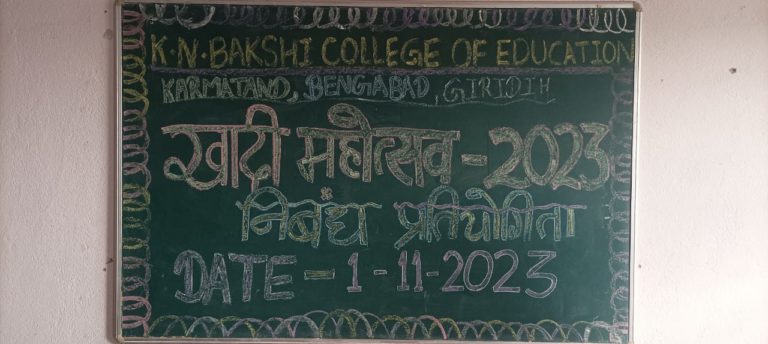 K.N.BAKSHI COLLEGE OF EDUCATION
KARMATAND, BENGABAD, GIRIDIH
खादी महोत्सव-2023
निबंध प्रतियोगिता
DATE - 1-11-2023